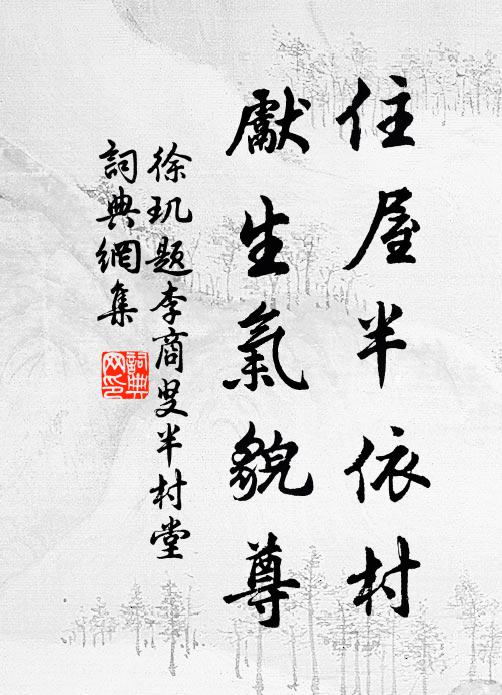 住屋半依村
獻生氣貌尊
徐玑題李商叟半村堂
詞典網集
詞典网印